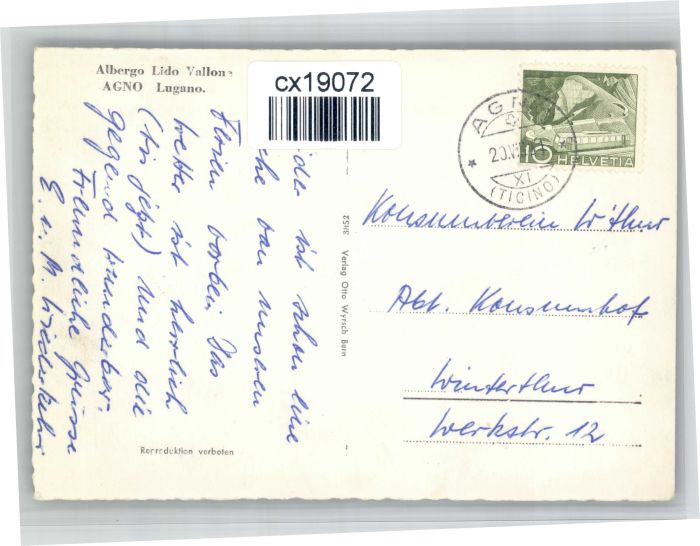 Albergo Lido Vallone
AGNO Lugano.
cx19072
AGNO
20.VI
XI
(TICINO)
10 HELVETIA
ist schon eine
von unseren
Ferien vorbei. Das
Wetter ist herrlich
(bis jetzt) und die
Gegend wunderbar.
Freundliche Grüsse
E. u. M.
3H52 Verlag Otto Wyrsch Bern
Reproduktion verboten
Konsumverein W'thur
Abt. Konsumhof
Winterthur
Werkstr. 12